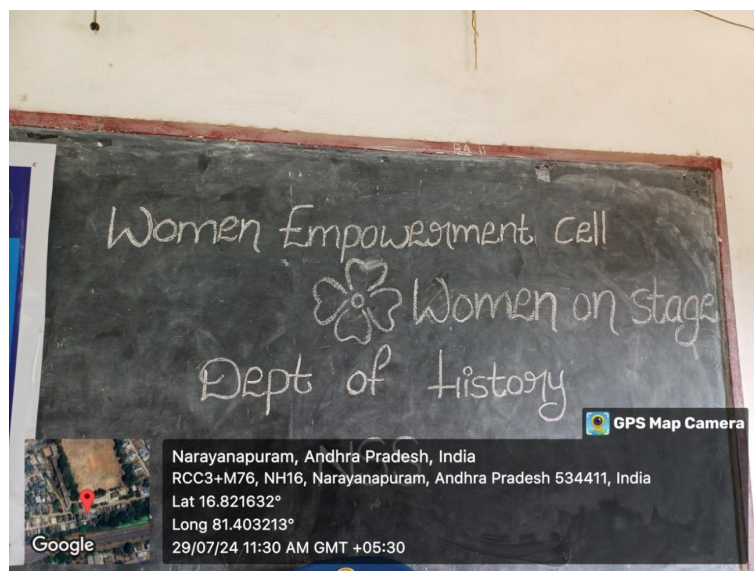 RA 11
Women Empowerment Cell
Women on stage
Dept of History
NSS
GPS Map Camera
Narayanapuram, Andhra Pradesh, India
RCC3+M76, NH16, Narayanapuram, Andhra Pradesh 534411, India
Lat 16.821632°
Long 81.403213°
29/07/24 11:30 AM GMT +05:30
Google